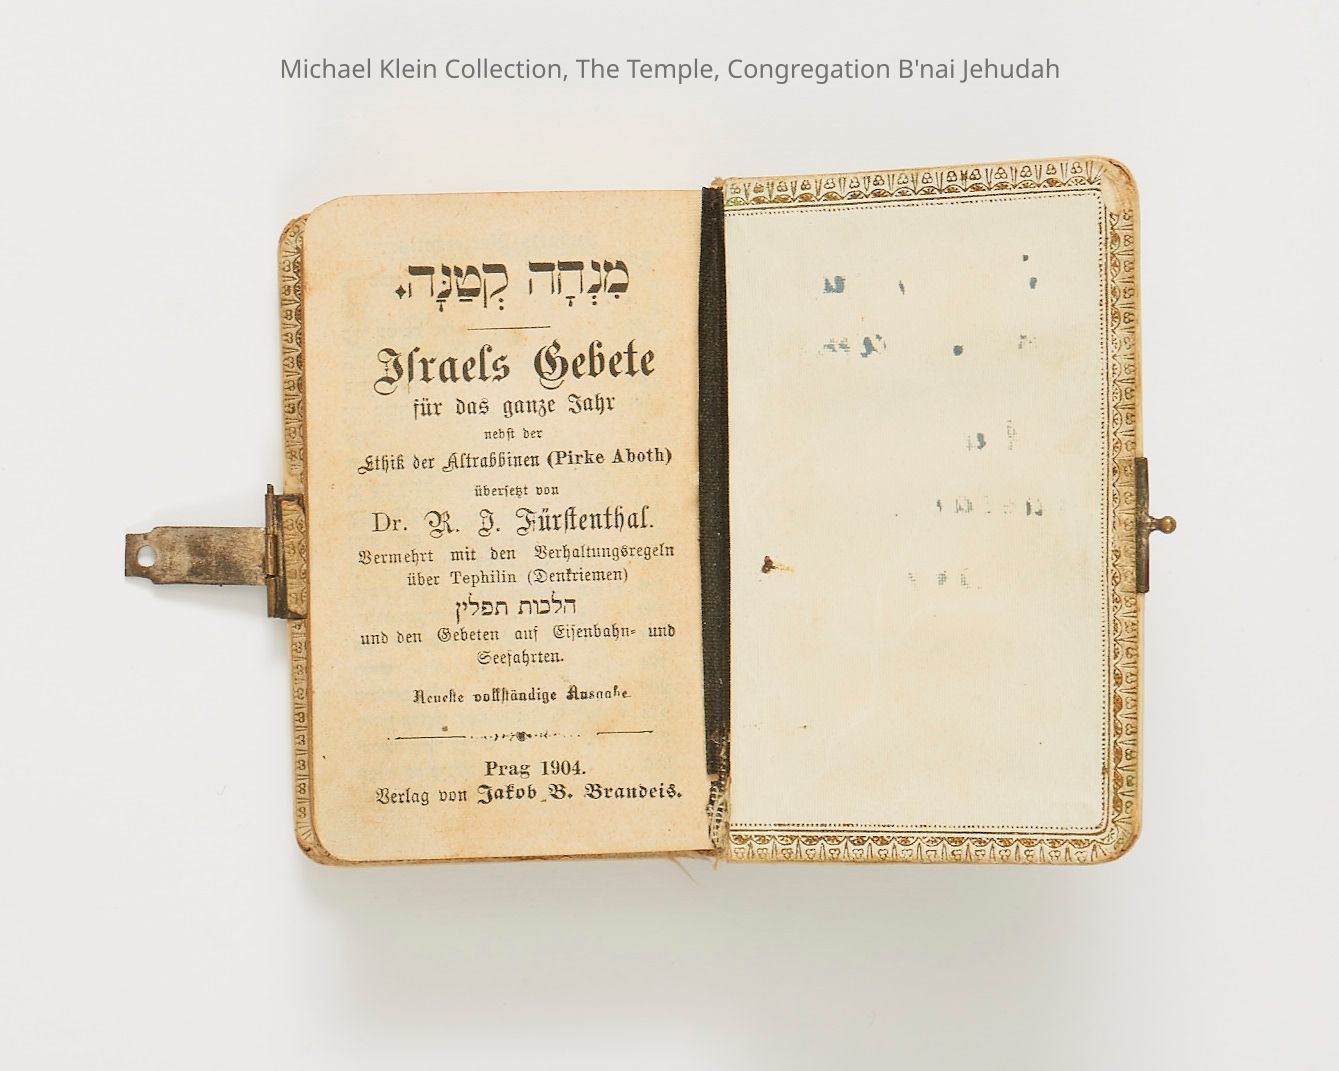 Michael Klein Collection, The Temple, Congregation B'nai Jehudah
מִנְחָה קְטַנָּה.
Iſraels Gebete
für das ganze Jahr
nebſt der
Ethik der Altrabbinen (Pirke Aboth)
überſetzt von
Dr. R. J. Fürſtenthal.
Vermehrt mit den Verhaltungsregeln
über Tephilin (Denkriemen)
הלכות תפלין
und den Gebeten auf Eiſenbahn- und
Seefahrten.
Neueſte vollſtändige Ausgabe.
Prag 1904.
Verlag von Jakob B. Brandeis.